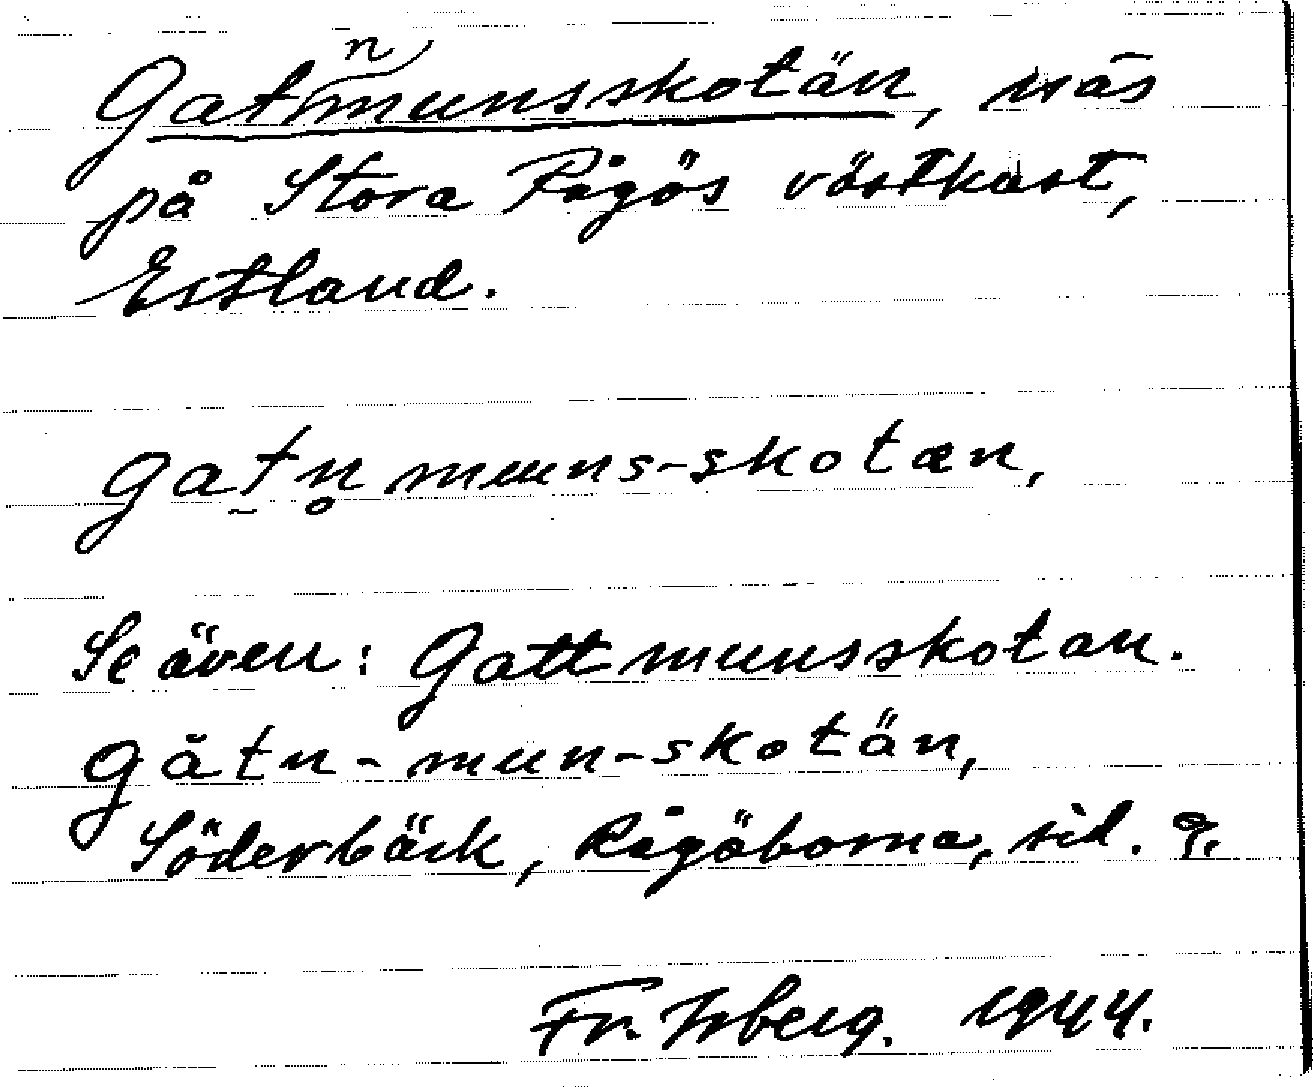 Gatnmunsskotän, näs
på Stora Rågös västkust,
Estland.
gatn̥ muuns-skotæn,
Se även: Gattmunsskotan.
gătn-mun-skotän,
Söderbäck, Rågöborna, sid. 9.
Fr. Isberg. 1944.